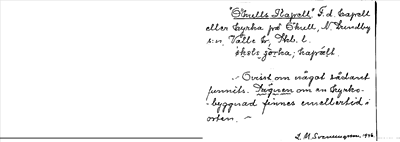 "Skulls Kapell" F. d. Capell
eller kyrka på Skull, N. Lundby
s:n, Valle h., Skb. l.
skuls çörka; kapäll.
~ Ovisst om något sådant
funnits. Sägnen om en kyrko-
byggnad finnes emellertid i
orten. ~